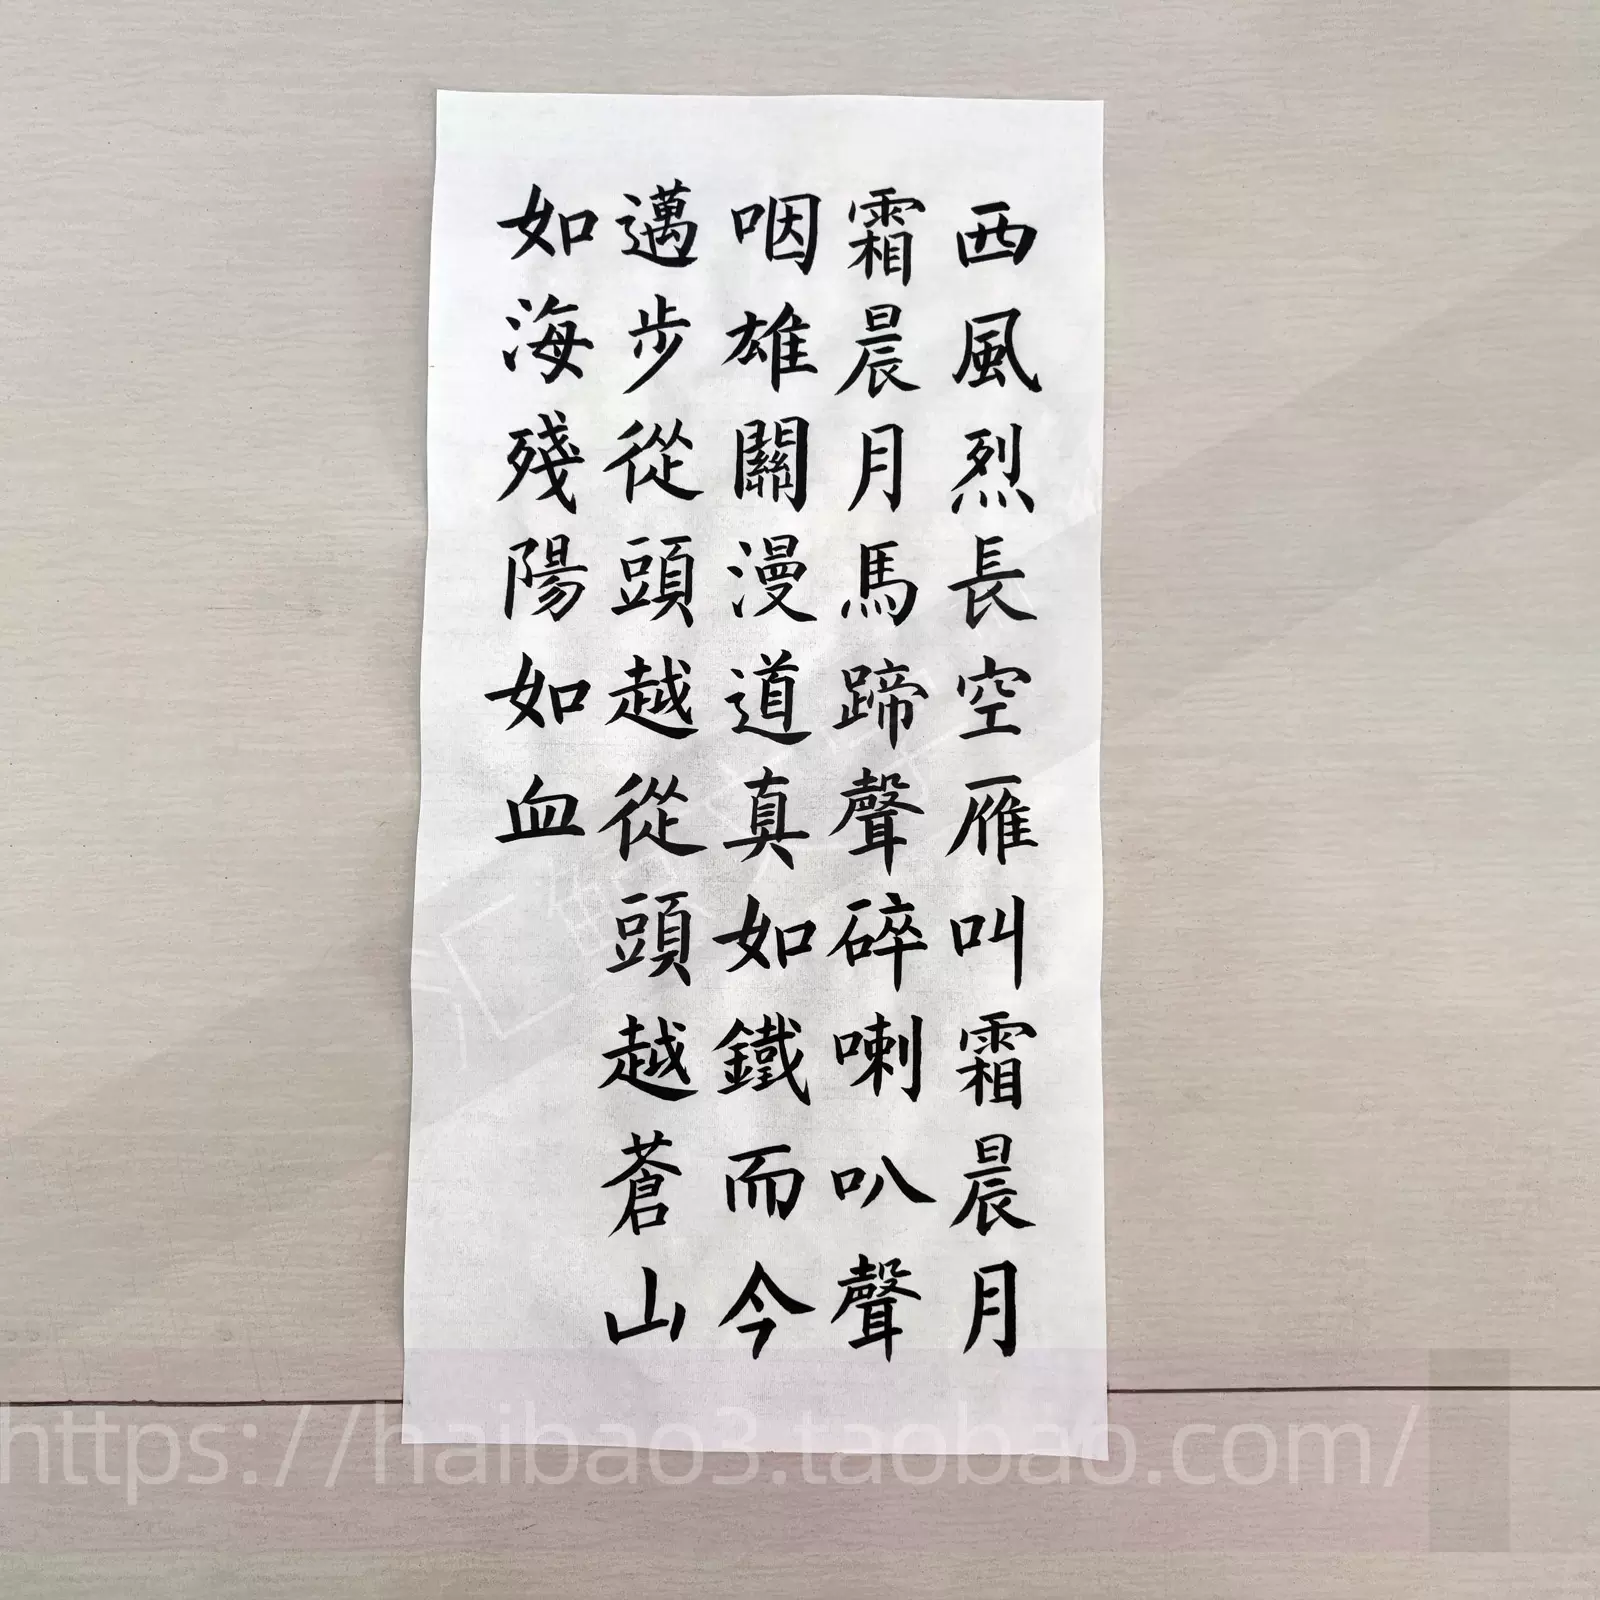 西風烈長空雁叫霜晨月
霜晨月馬蹄聲碎喇叭聲
咽雄關漫道真如鐵而今
邁步從頭越從頭越蒼山
如海殘陽如血
https://haibao3.taobao.com/